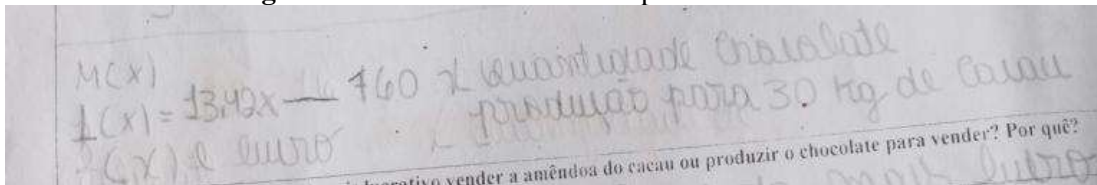 M(x)
L(x) = 13,42x — 760 x quantidade chocolate
produção para 30 kg de cacau
L(x) é lucro
vender a amêndoa do cacau ou produzir o chocolate para vender? Por quê?
mais lucro